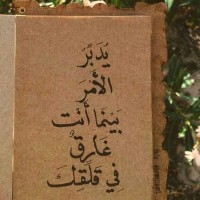 يُدَبّرُ
الأَمْرَ
بَيْنَمَا أَنْت
غَارِقٌ
فِي قَلَقِكَ